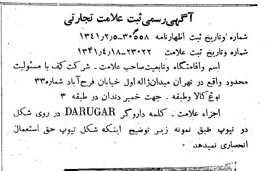 آگهی رسمی ثبت علامت تجارتی
شماره وتاریخ ثبت اظهارنامه ۳۰۰۵۸-۱۳۴۱٫۲٫۵
شماره وتاریخ ثبت علامت ۲۳۰۲۲-۱۳۴۱٫۴٫۱۸
اسم واقامتگاه وتابعیت صاحب علامت - شرکت کف با مسئولیت
محدود واقع در تهران میدان ژاله اول خیابان فرح آباد شماره ۳۳
نوع کالا وطبقه - جهت خمیر دندان در طبقه ۳
اجزاء علامت - کلمه داروگر DARUGAR در روی شکل
دو تیوپ طبق نمونه زیر توضیح اینکه شکل تیوپ حق استعمال
انحصاری نمیدهد